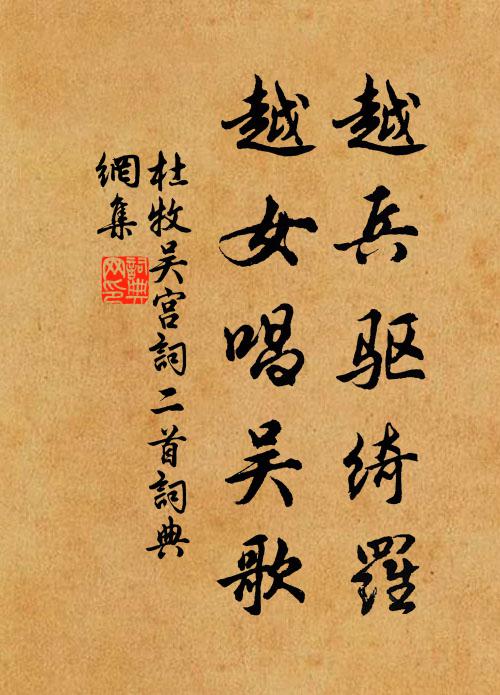 越兵驱綺羅
越女唱吴歌
杜牧吴宮詞二首詞典
網集
詞典網印